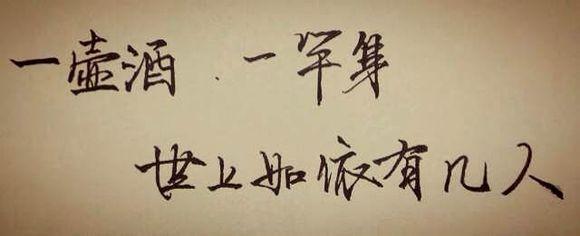 一壶酒.一竿身
世上如侬有几人